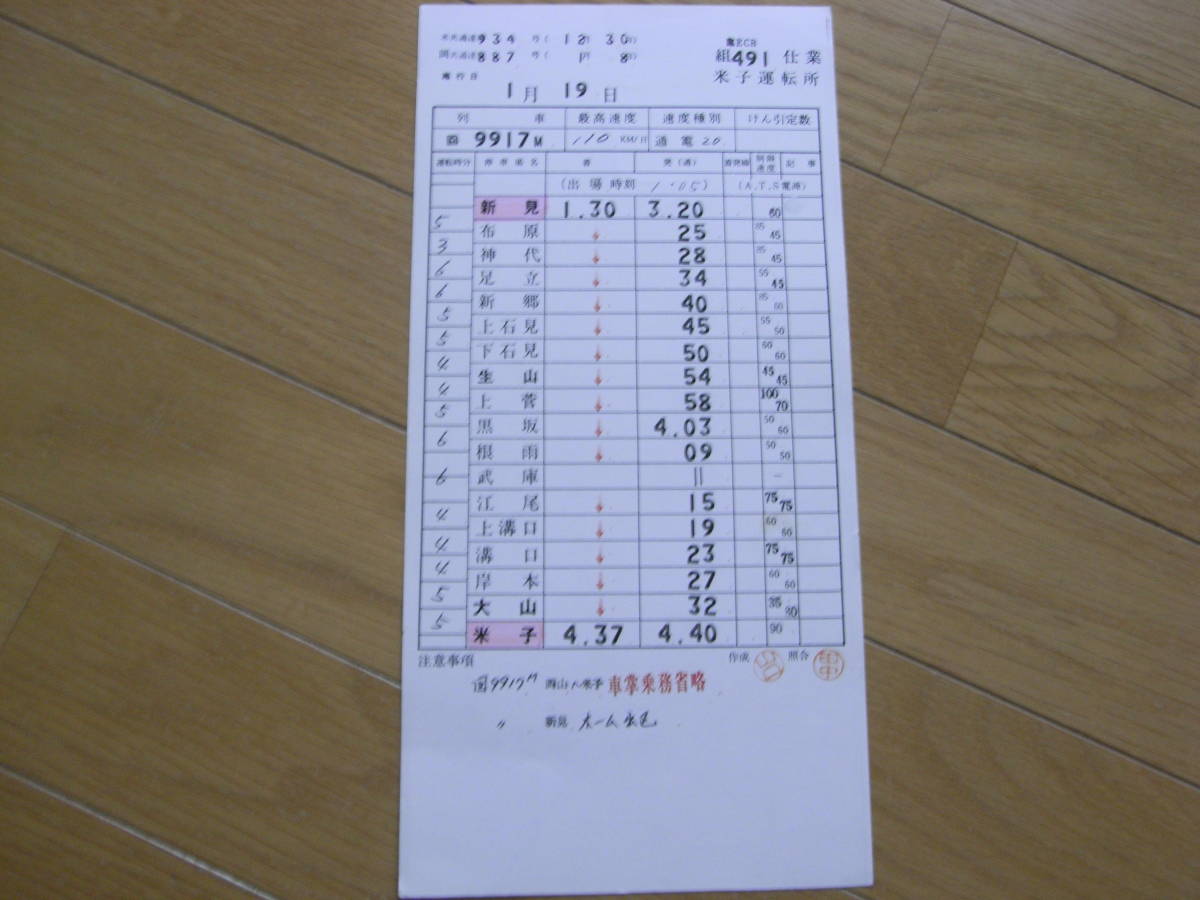 米光通達934号(12月30日)
岡光通達887号(1月8日)
ECB
組491仕業
米子運転所
施行日
1月19日
列車 最高速度 速度種別 けん引定数
回9917M 110KM/H 通電20
運転時分 停車場名 着 発(通) 着発線 制限速度 記事
(出場時刻 1.05) (A.T.S電源)
新見 1.30 3.20 60
5
布原 ↓ 25 85 45
3
神代 ↓ 28 85 45
6
足立 ↓ 34 55 45
6
新郷 ↓ 40 85 60
5
上石見 ↓ 45 55 50
5
下石見 ↓ 50 60 60
4
生山 ↓ 54 45 45
4
上菅 ↓ 58 100 70
5
黒坂 ↓ 4.03 50 60
6
根雨 ↓ 09 50 50
武庫 || -
6
江尾 ↓ 15 75 75
4
上溝口 ↓ 19 60 60
4
溝口 ↓ 23 75 75
4
岸本 ↓ 27 60 60
5
大山 ↓ 32 35 80
5
米子 4.37 4.40 90
注意事項 作成 照合 田中
回9917M 岡山〜米子 車掌乗務省略
〃 新見 ホーム出色